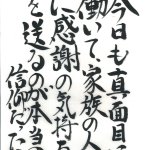 今日も真面目に
働いて家族の人
に感謝の気持ち
を送るのが本当の
信仰だった